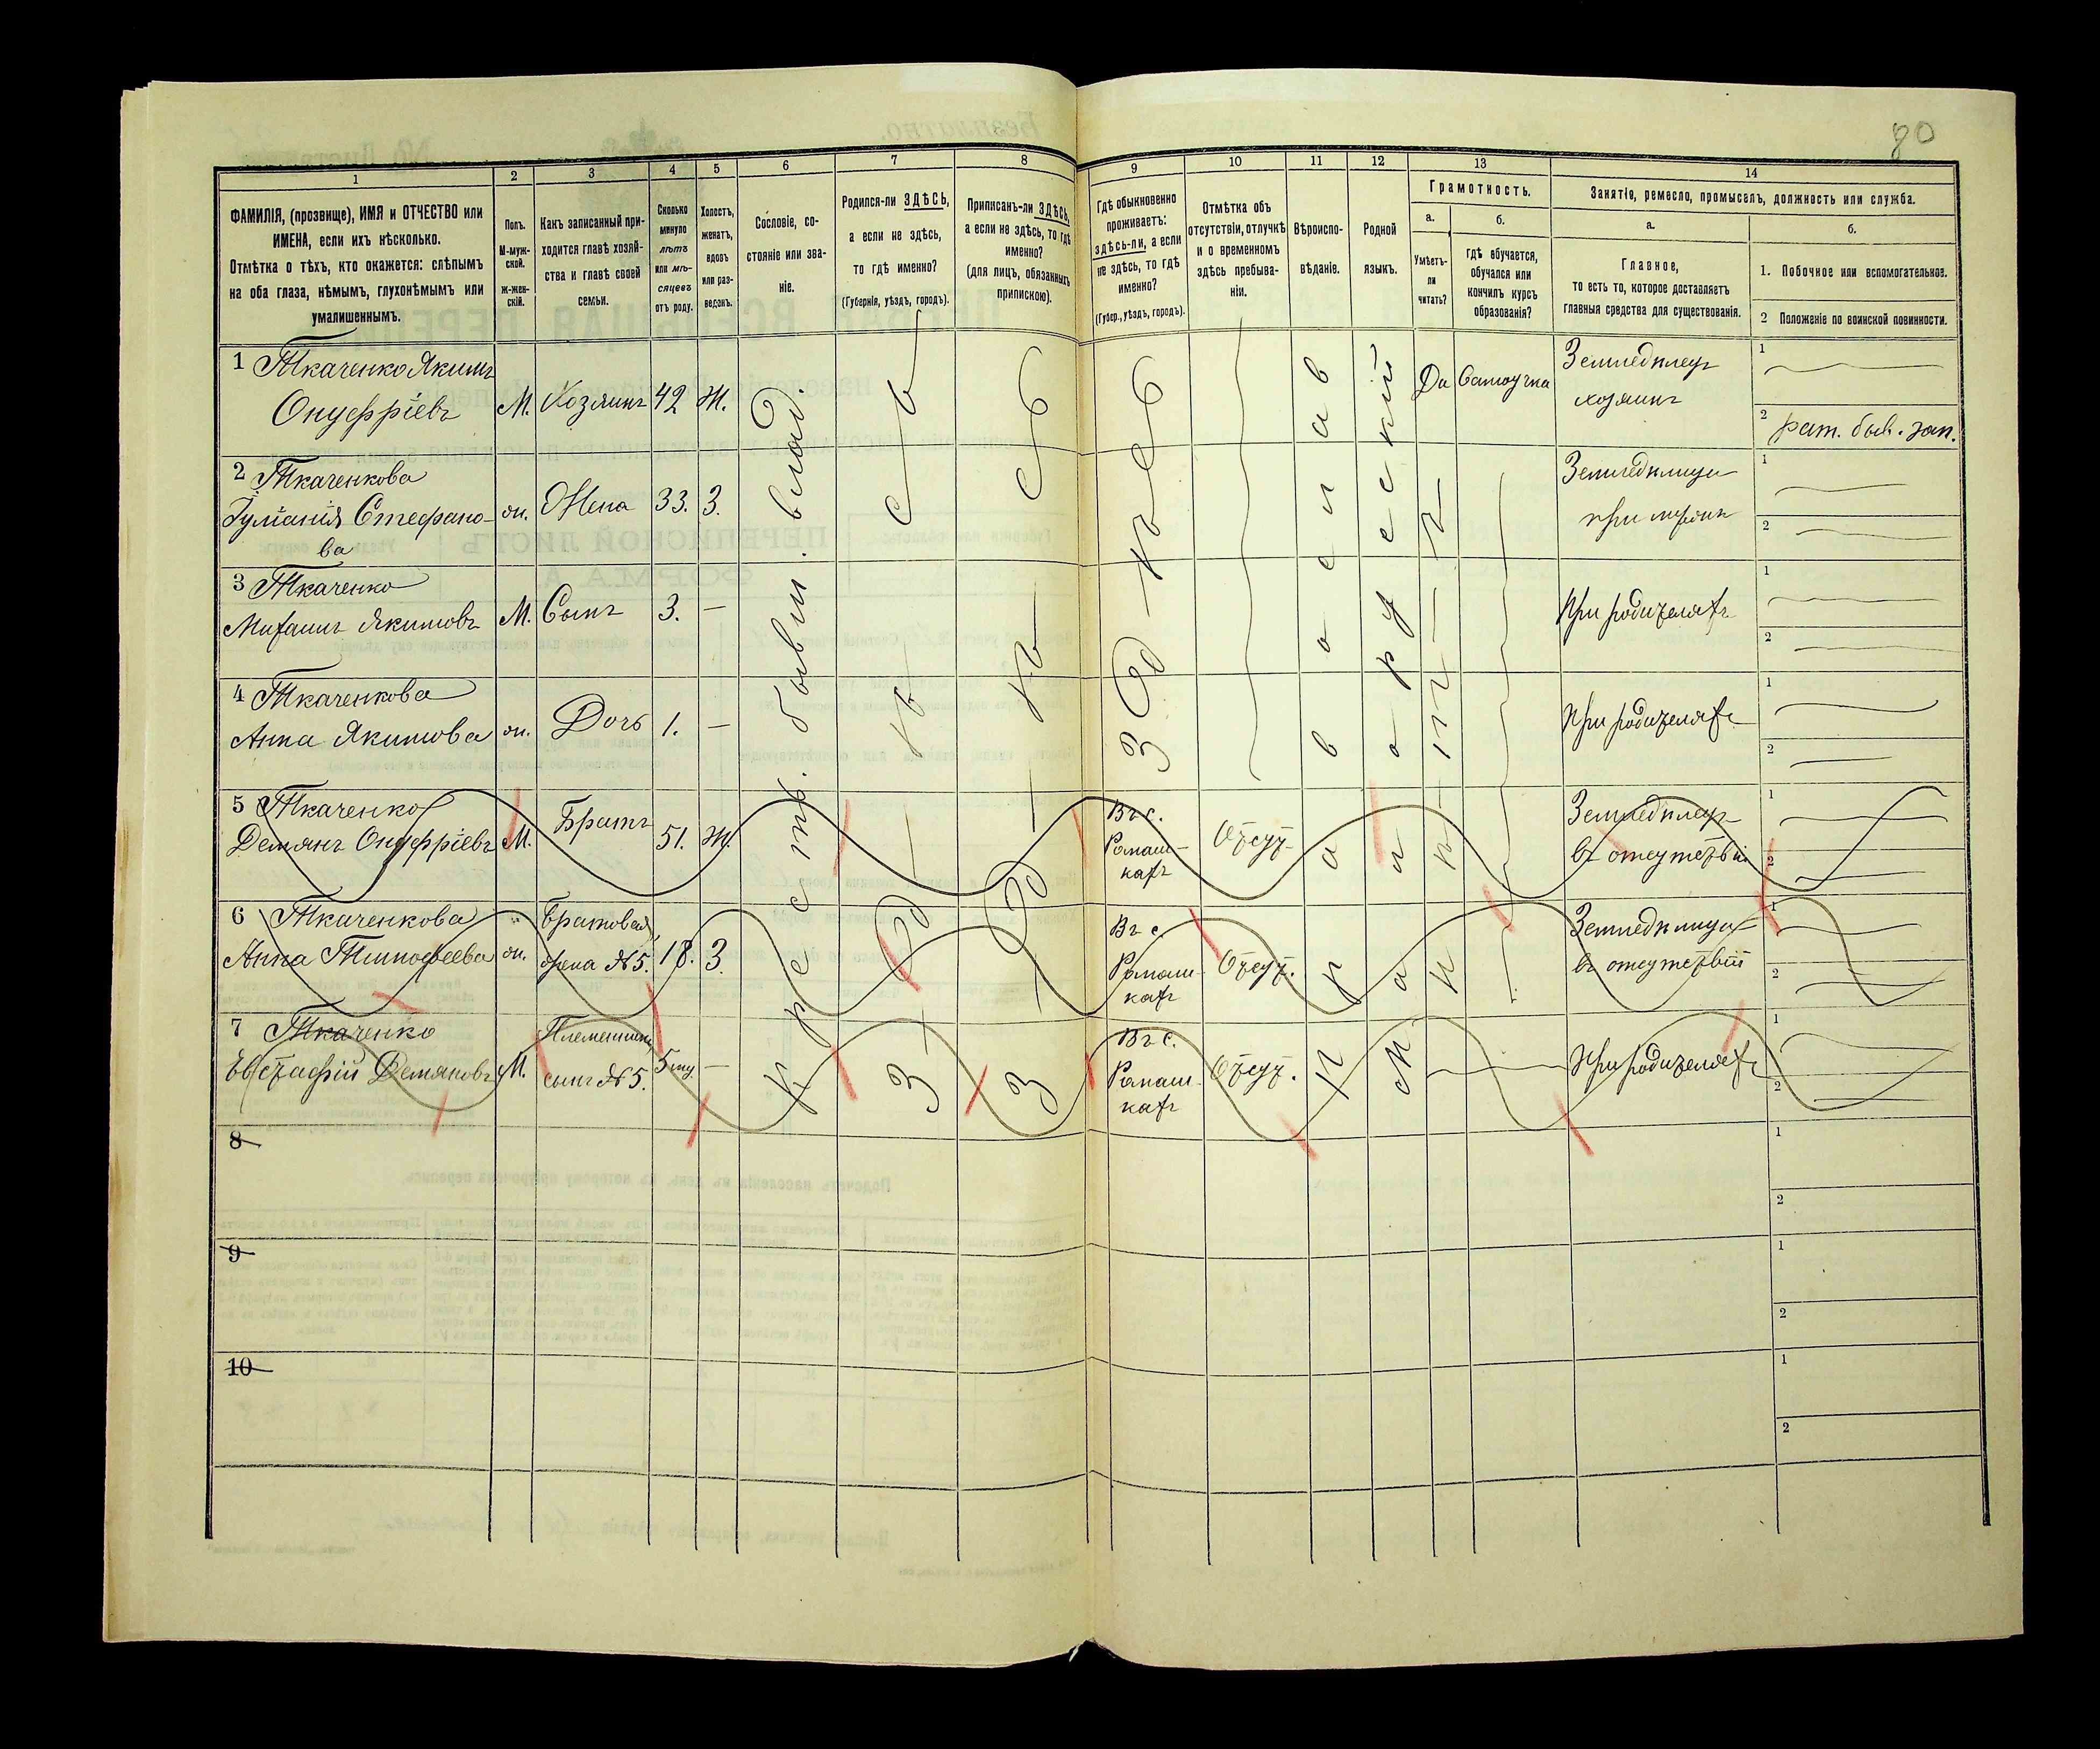 80
1
2
3
4
5
6
7
8
9
10
11
12
13
14
ФАМИЛІЯ, (прозвище), ИМЯ и ОТЧЕСТВО или
ИМЕНА, если ихъ нѣсколько.
Отмѣтка о тѣхъ, кто окажется: слѣпымъ
на оба глаза, нѣмымъ, глухонѣмымъ или
умалишеннымъ.
Полъ.
М-муж-
ской.
ж-жен-
скій.
Какъ записанный при-
ходится главѣ хозяй-
ства и главѣ своей
семьи.
Сколько
минуло
лѣтъ
или мѣ-
сяцевъ
отъ роду.
Холостъ,
женатъ,
вдовъ
или раз-
веденъ.
Сословіе, со-
стояніе или зва-
ніе.
Родился-ли ЗДѢСЬ,
а если не здѣсь,
то гдѣ именно?
(Губернія, уѣздъ, городъ).
Приписанъ-ли ЗДѢСЬ,
а если не здѣсь, то гдѣ
именно?
(для лицъ, обязанныхъ
припискою).
Гдѣ обыкновенно
проживаетъ:
здѣсь-ли, а если
не здѣсь, то гдѣ
именно?
(Губер., уѣздъ, городъ).
Отмѣтка объ
отсутствіи, отлучкѣ
и о временномъ
здѣсь пребыва-
ніи.
Вѣроиспо-
вѣданіе.
Родной
языкъ.
Грамотность.
а.
Умѣетъ-
ли
читать?
б.
гдѣ обучается,
обучался или
кончилъ курсъ
образованія?
Занятія, ремесло, промыселъ, должность или служба.
а.
Главное,
то есть то, которое доставляетъ
главныя средства для существованія.
б.
1. Побочное или вспомогательное.
2 Положеніе по воинской повинности.
1 Ткаченко Якимъ
Онуфріевъ
М. Хозяинъ 42 Ж.
Крест. бывш. влад.
Здѣсь
Здѣсь
Здѣсь
православ
малорусскій
Да Самоучка
Земледѣлецъ
хозяинъ
1
2 рат. был. зап.
2 Ткаченкова
Стефано-
ва
ж. Жена 33. З.
нѣтъ
Земледѣлица
при мужѣ
1
2
3 Ткаченко
Якимовъ
М. Сынъ 3. —
При родителяхъ
1
2
4 Ткаченкова
Анна Якимова
ж. Дочь 1. —
При родителяхъ
1
2
5 Ткаченко
Демянъ Онуфріевъ
М. Братъ 51. Ж.
Въ с.
Ромаш-
кахъ
Отсут.
Земледѣлецъ
въ отсутствіи
1
2
6 Ткаченкова
Анна Тимофеева
ж. Братовая,
жена №5. 18. З.
Въ с.
Ромаш-
кахъ
Отсут.
Земледѣлица
въ отсутствіи
1
2
7 Ткаченко
Евстафій Демяновъ
М. Племянникъ,
сынъ №5. —
Въ с.
Ромаш-
кахъ
Отсут.
При родителяхъ
1
2
8
1
2
9
1
2
10
1
2